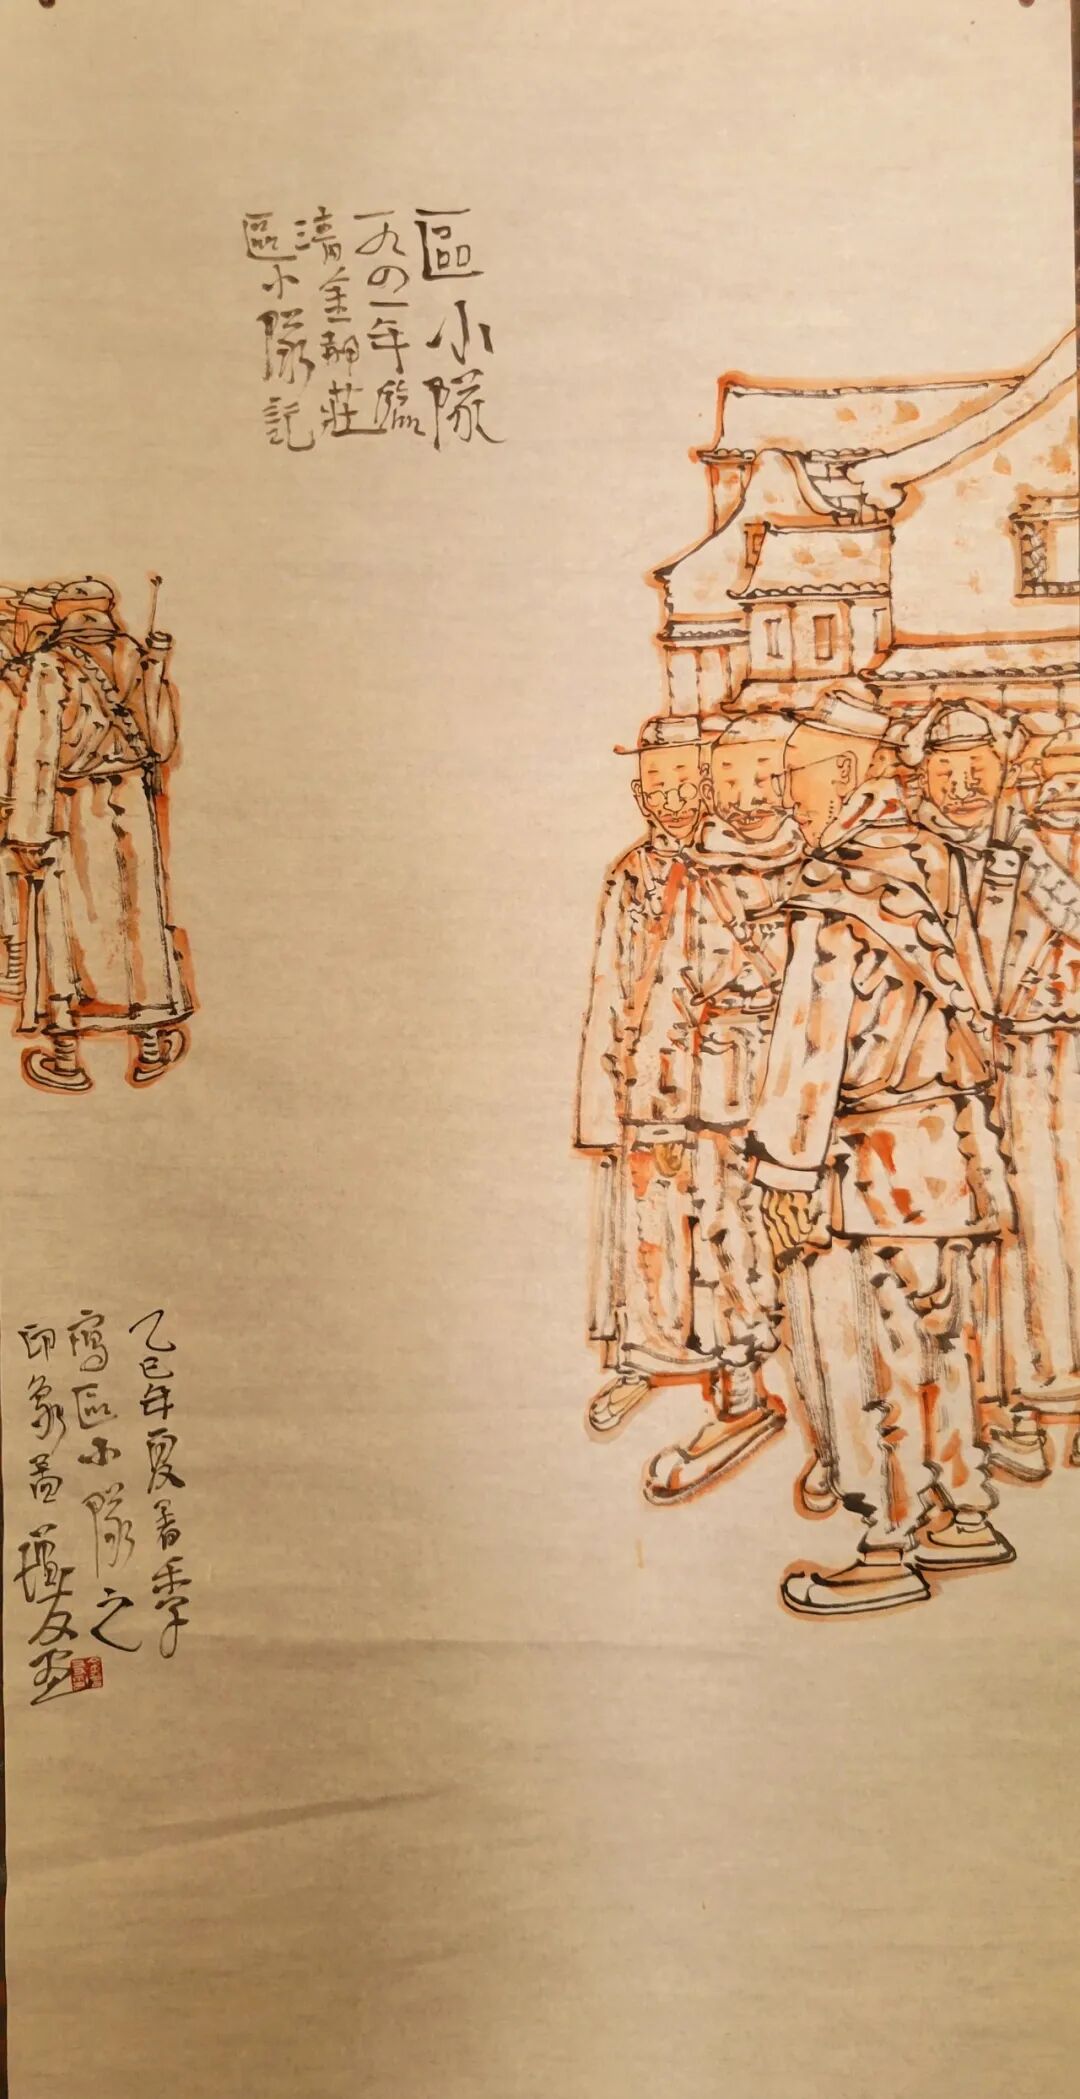 區小隊
一九四一年臨
清金郝莊
區小隊記
乙巳年夏暑季
寫區小隊之
印象畫 友画